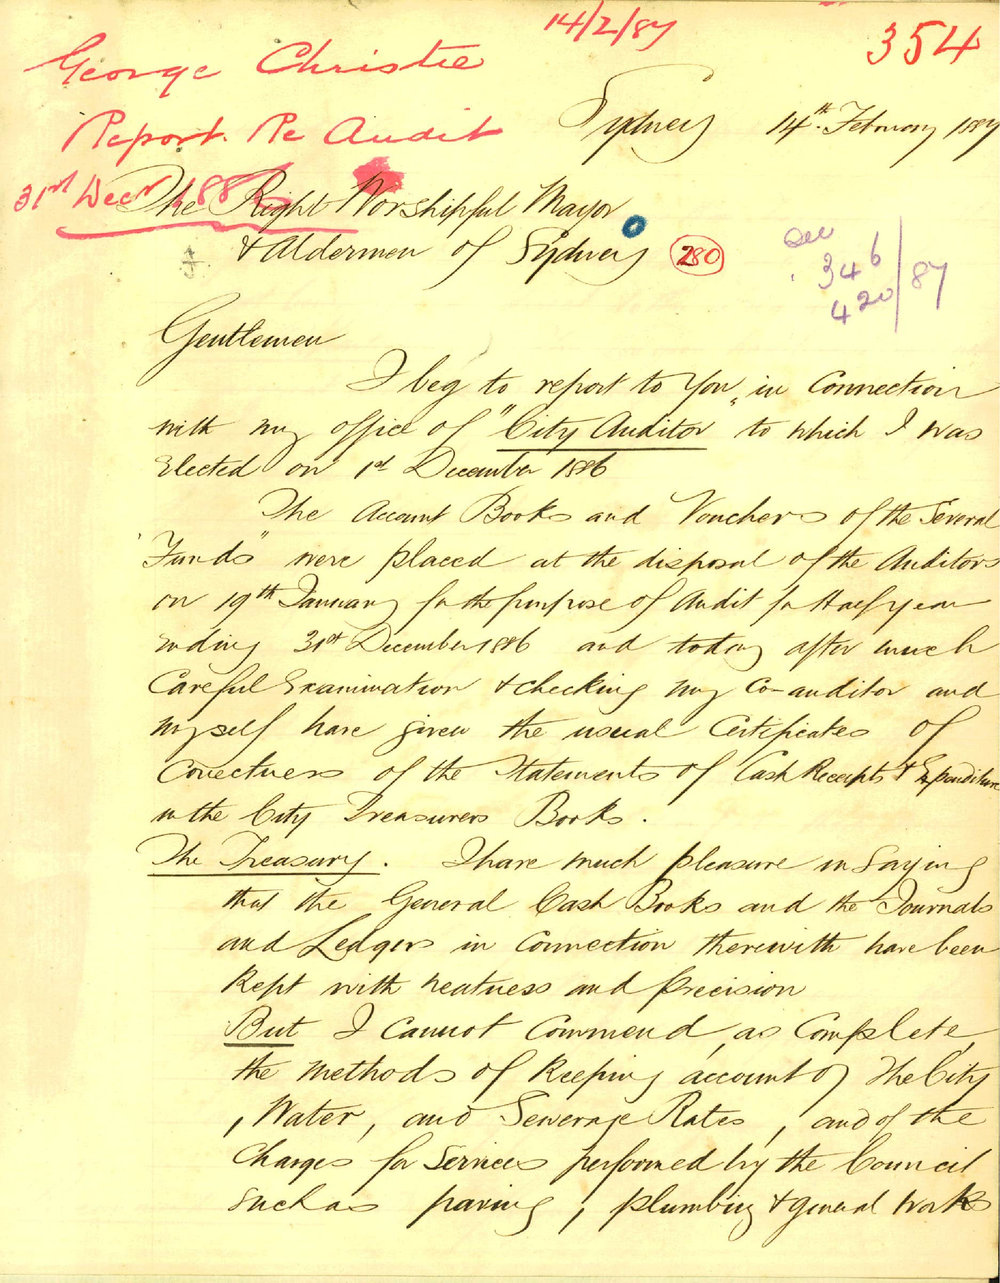 14/2/87
354
George Christie
Report Re Audit
31st Decr 1886
Sydney 14th February 1887
The Right Worshipful Mayor
& Aldermen of Sydney
280
see
346
420/87
Gentlemen
I beg to report to You, in Connection
with my office of "City Auditor to which I was
Elected on 1st December 1886
The Account Books and Vouchers of the Several
"Funds" were placed at the disposal of the Auditors
on 19th January for the purpose of Audit for Half year
ending 31st December 1886 and today after much
Careful Examination & checking my Co-auditor and
myself have given the usual Certificates of
Correctness of the Statements of Cash Receipts & Expenditure
in the City Treasurers Books.
The Treasury. I have much pleasure in Saying
that the General Cash Books and the Journals
and Ledgers in Connection therewith have been
Kept with neatness and precision
But I Cannot Commend, as Complete,
the methods of Keeping account of The City
, Water, and Sewerage Rates, and of the
Charges for Services performed by the Council
such as paving, plumbing & general works